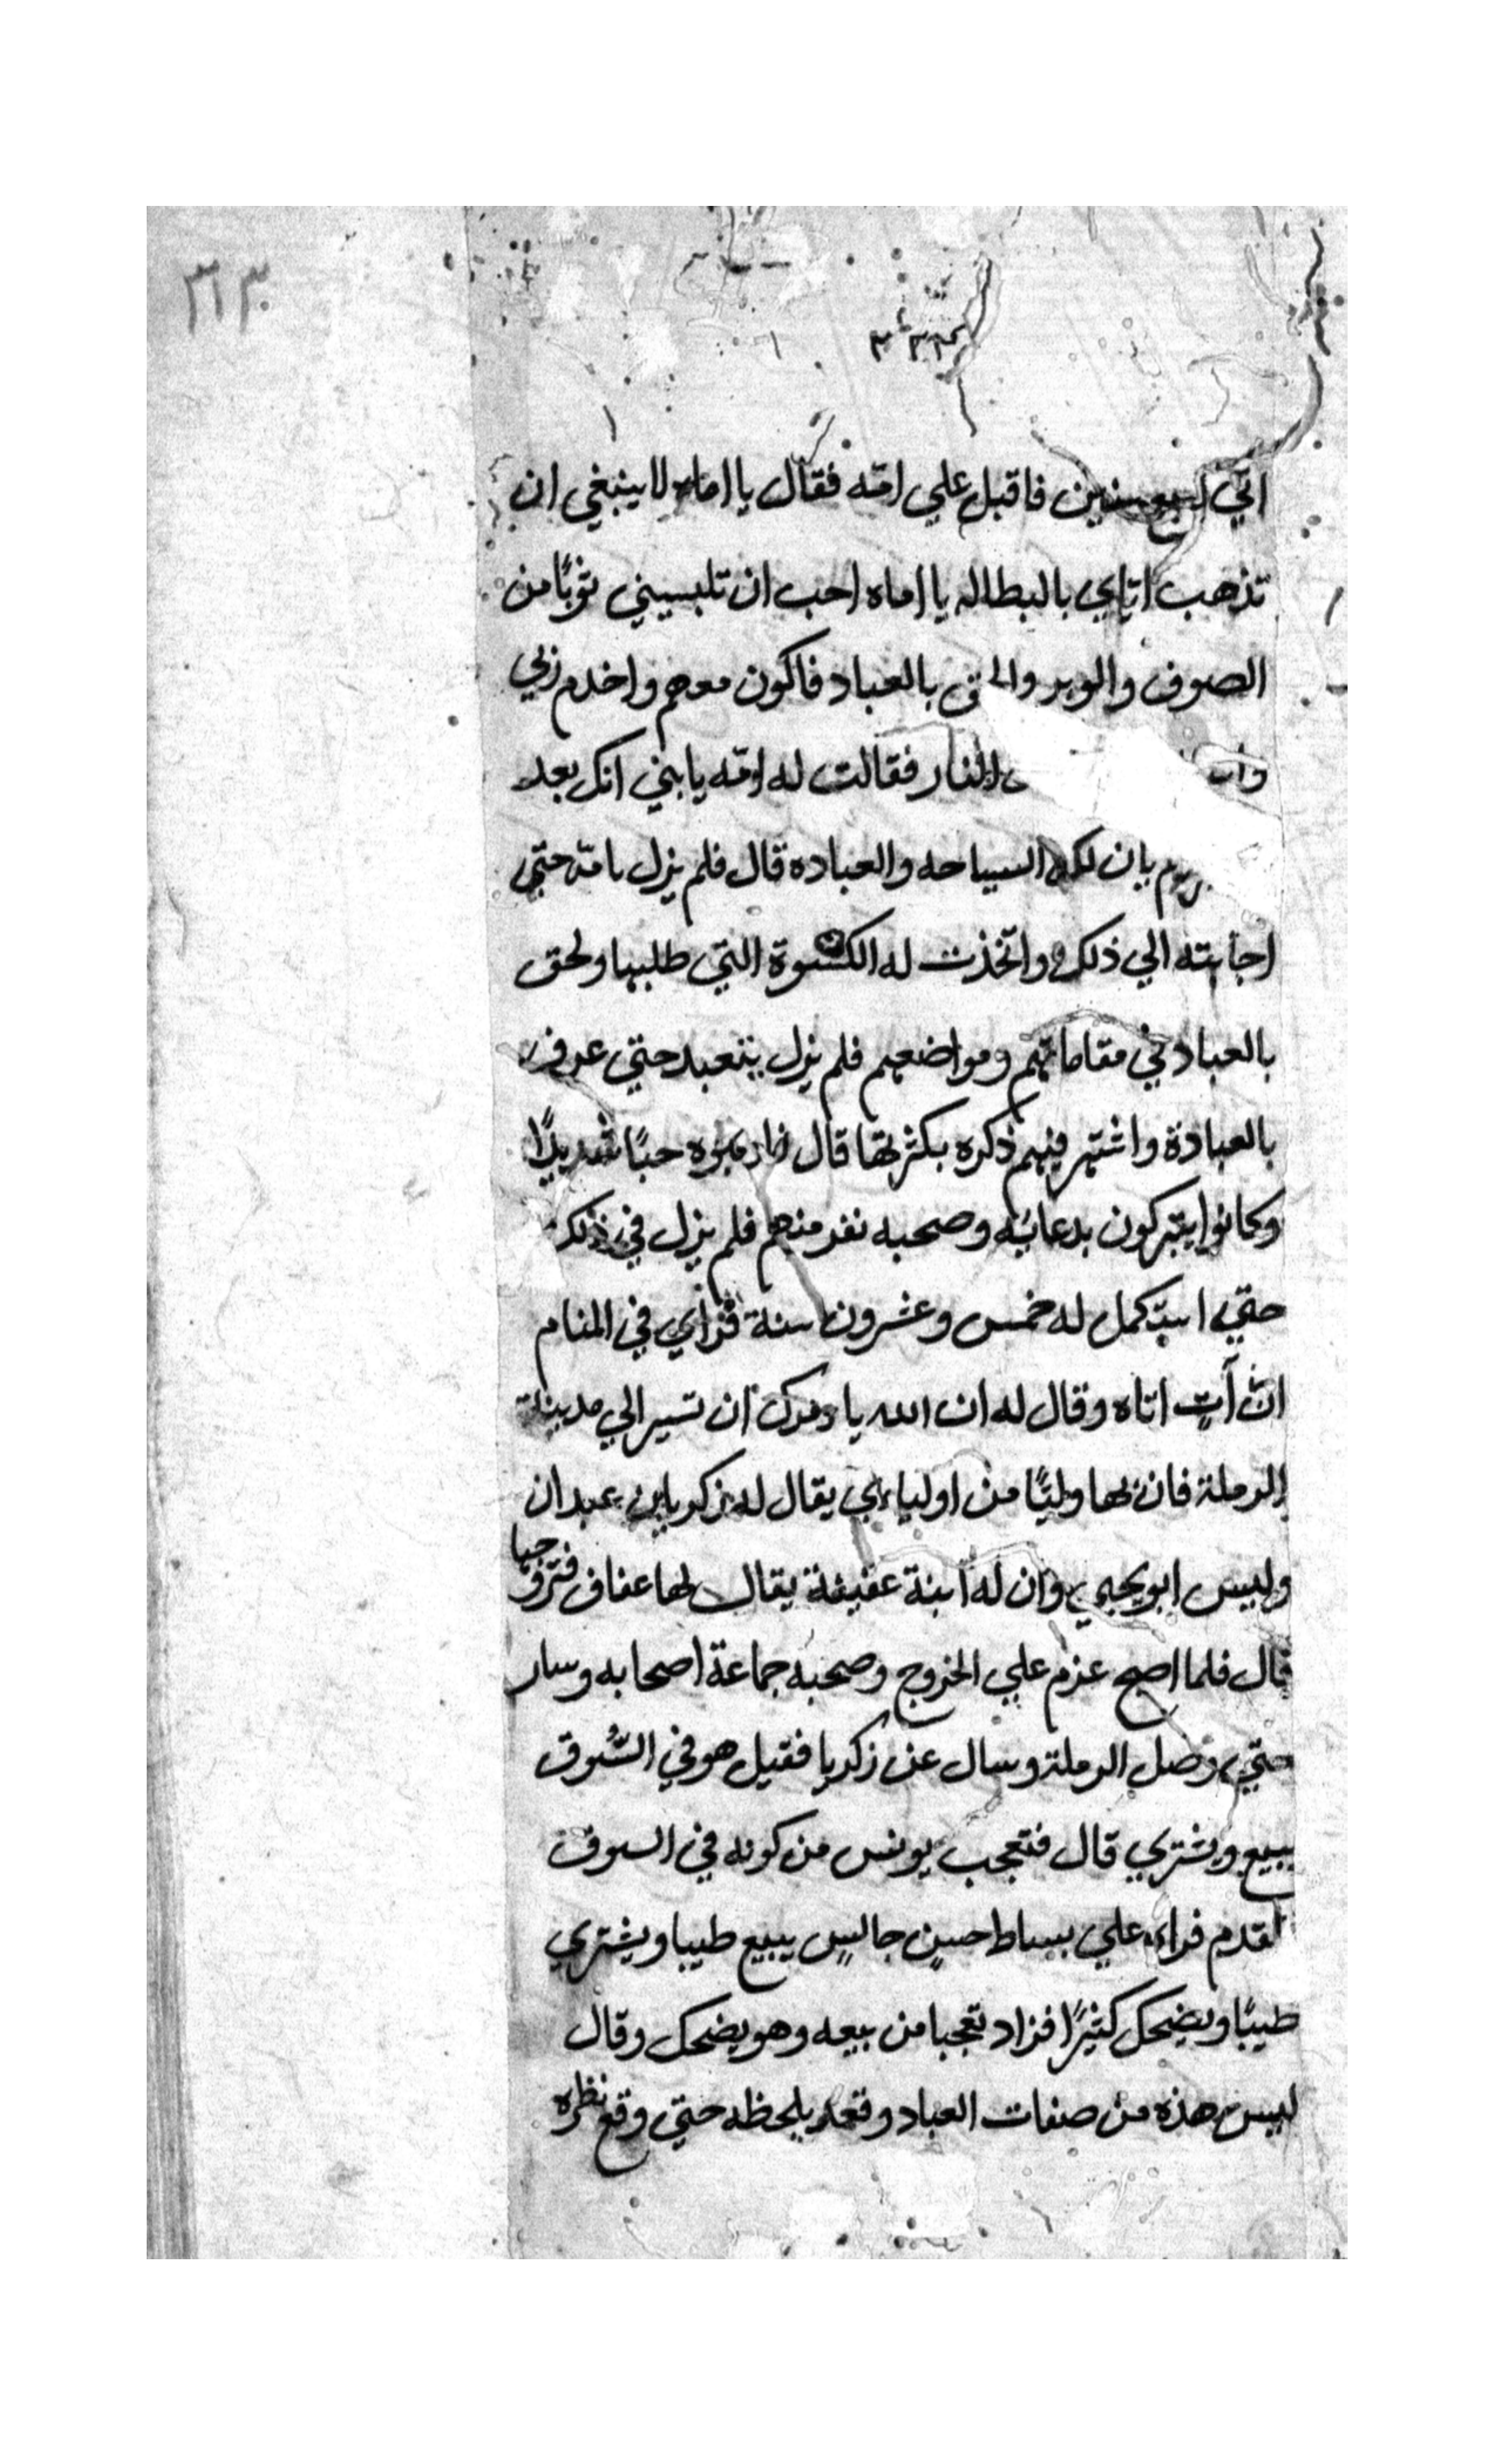 ٣١٣
اتي لسبع سنين فاقبل علي امّه فقال يا اماه لا ينبغي ان
تذهب ايامي بالبطاله يا اماه احب ان تلبسيني ثوبًا من
الصوف والوبر والحق بالعباد فاكون معهم واخدم ربي
النار فقالت له امّه يا بني انك بعد
بان لك السياحه والعباده قال فلم يزل بامّه حتي
اجابته الي ذلك واتخذت له الكسوة التي طلبها ولحق
بالعباد في مقاماتهم ومواضعهم فلم يزل يتعبد حتي عرف
بالعبادة واشتهر فيهم ذكره بكثرتها قال حبًا شديدًا
وكانوا يتبركون بدعائه وصحبه نفر منهم فلم يزل في ذلك
حتي استكمل له خمس وعشرون سنة فراي في المنام
انّ آتٍ اتاه وقال له ان الله يامرك ان تسير الي مدينة
الرملة فان بها وليًا من اوليائي يقال له زكريا بن عبدان
وليس ابو يحيي وان له ابنة عفيفة يقال لها عفاف فتزوجها
قال فلما اصبح عزم علي الخروج وصحبه جماعة اصحابه وسار
حتي وصل الرملة وسال عن زكريا فقيل هو في السُّوق
يبيع ويشتري قال فتعجب يونس من كونه في السوق
فتقدم فراه علي بساط حسنٍ جالسٍ يبيع طيبا ويشتري
طيبًا ويضحك كثيرًا فزاد تعجبا من بيعه وهو يضحك وقال
ليس هذه من صفات العباد وقعد يلحظه حتي وقع نظره